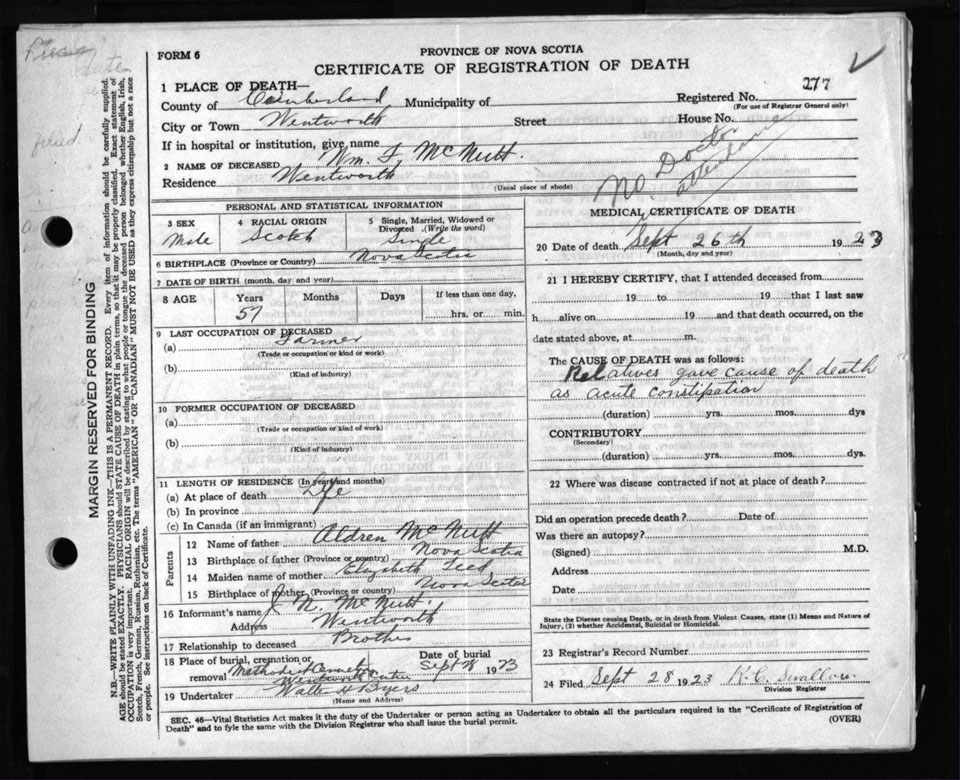 FORM 6
PROVINCE OF NOVA SCOTIA
CERTIFICATE OF REGISTRATION OF DEATH
1 PLACE OF DEATH—
Registered No. 277
(For use of Registrar General only)
County of Cumberland Municipality of
City or Town Wentworth Street House No.
If in hospital or institution, give name
2 NAME OF DECEASED Wm. F. McNutt.
Residence Wentworth
(Usual place of abode)
No Doctor
attendance
PERSONAL AND STATISTICAL INFORMATION
3 SEX Male
4 RACIAL ORIGIN Scotch
5 Single, Married, Widowed or Divorced (Write the word) Single
6 BIRTHPLACE (Province or Country) Nova Scotia
7 DATE OF BIRTH (month, day and year)
8 AGE Years Months Days If less than one day,
57 hrs. or min.
9 LAST OCCUPATION OF DECEASED
(a) Farmer
(Trade or occupation or kind of work)
(b)
(Kind of industry)
10 FORMER OCCUPATION OF DECEASED
(a)
(Trade or occupation or kind of work)
(b)
(Kind of industry)
11 LENGTH OF RESIDENCE (In years and months)
(a) At place of death Life
(b) In province
(c) In Canada (if an immigrant)
Parents
12 Name of father Aldren McNutt
13 Birthplace of father (Province or country) Nova Scotia
14 Maiden name of mother Elizabeth Teed
15 Birthplace of mother (Province or country) Nova Scotia
16 Informant's name J. N. McNutt.
Address Wentworth
17 Relationship to deceased Brother
18 Place of burial, cremation or removal Methodist Cemetery
Wentworth Centre
Date of burial
Sept 28 1923
19 Undertaker Walter H Byers
(Name and Address)
MEDICAL CERTIFICATE OF DEATH
20 Date of death Sept 26th 1923
(Month, day and year)
21 I HEREBY CERTIFY, that I attended deceased from
19 to 19 that I last saw
h alive on 19 and that death occurred, on
date stated above, at m.
The CAUSE OF DEATH was as follows:
Relatives gave cause of death
as acute constipation
(duration) yrs. mos. dys
CONTRIBUTORY
(Secondary)
(duration) yrs. mos. dys.
22 Where was disease contracted if not at place of death?
Did an operation precede death? Date of
Was there an autopsy?
(Signed) M.D.
Address
Date
State the Disease causing Death, or in death from Violent Causes, state (1) Means and Nature of Injury, (2) whether Accidental, Suicidal or Homicidal.
23 Registrar's Record Number
24 Filed Sept 28 1923 K. C. Swallow
Division Registrar
SEC. 46—Vital Statistics Act makes it the duty of the Undertaker or person acting as Undertaker to obtain all the particulars required in the "Certificate of Registration of
Death" and to fyle the same with the Division Registrar who shall issue the burial permit.
(OVER)
MARGIN RESERVED FOR BINDING
N.B.—WRITE PLAINLY WITH UNFADING INK—THIS IS A PERMANENT RECORD. Every item of information should be carefully supplied.
AGE should be stated EXACTLY. PHYSICIANS should STATE CAUSE OF DEATH in plain terms, so that it may be properly classified. Exact statement of
OCCUPATION is very important. RACIAL ORIGIN will be described by stating to what people or tongue the deceased person belonged whether English, Irish,
Scotch, French, German, Russian, Ruthenian, etc. The terms "AMERICAN" OR "CANADIAN" MUST NOT BE USED as they express citizenship but not a race
or people. See instructions on back of Certificate.